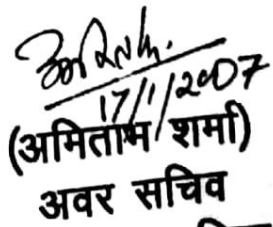 17/1/2007
(अमिताभ शर्मा)
अवर सचिव